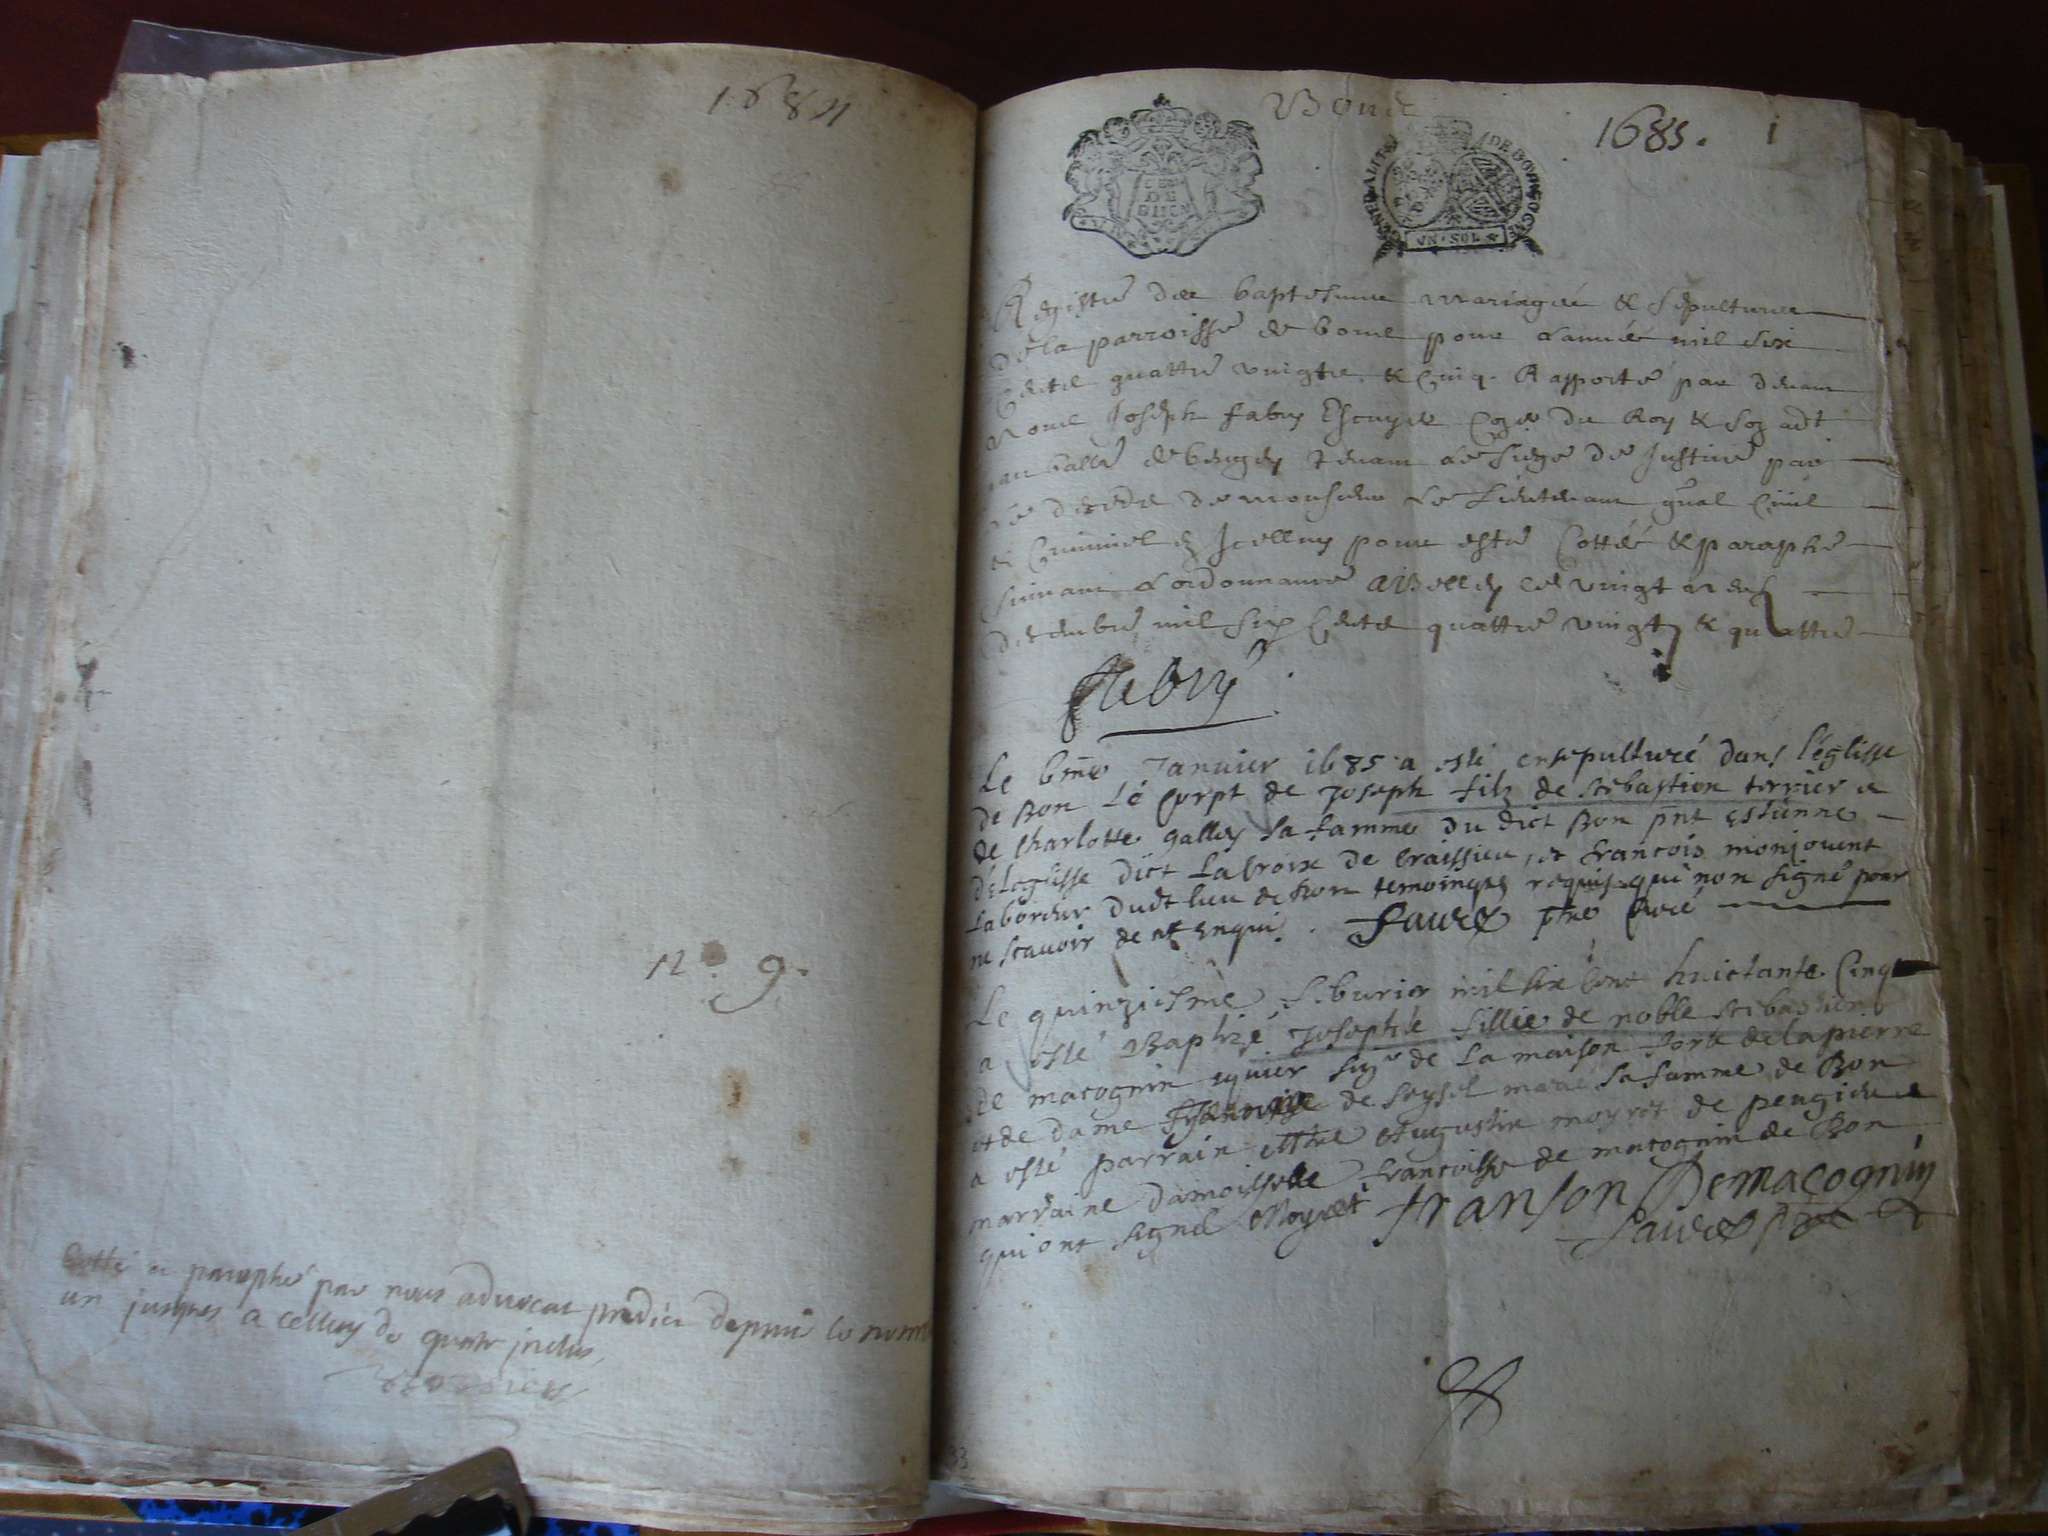 1684
N° 9.
Cotté et paraphé par nous advocat predict depuis le nom
un jusques a celluy de quatre inclus
Bons
1685. 1
GEN DE DIION
GENERALITE DE BOURGOGNE
VN · SOL
Registre des baptesmes mariages & sepultures
de la parroisse de bons pour l'année mil six
cents quattre vingts & cinq. Rapporté par devant
Nous Joseph fabry Escuyer Coner du Roy & son adt
au balle de bugey tenant le siege de Justice par
le deceds de monsieur le Lieutenant gnal Civil
& Criminel en Icelluy pour estre Cotté & paraphé
suivant l'ordonnance a Belley ce vingt
decembre mil six Cents quattre vingts & quattre
fabry
Le 6me Janvier 1685 a esté ensepulturé dans l'églisse
de Bon Le Corpt de Joseph fils de Sebastien terrier et
de Charlotte gallay sa famme du dict Bon pnt estienne
deleglisse dict La Croix de Craissieu, et francois monjouent
Laboreur dudt lieu de Bon temoingts requis qui non signé pour
ne scavoir de ce enquis. Favre ptre Curé
Le quinziesme feburier mil six cent huictante Cinq
a esté Baptizé Josephte fillie de noble sebastien
de macognin equier sigr de La maison forte de lapierre
et de dame francoise de seysel marie sa famme de Bon
a esté parrain Mtre Augustin moyret de peugieu et
marraine damoisselle francoisse de macognin de Bon
qui ont signé Moyret franson Demacognin
Favre ptre
33